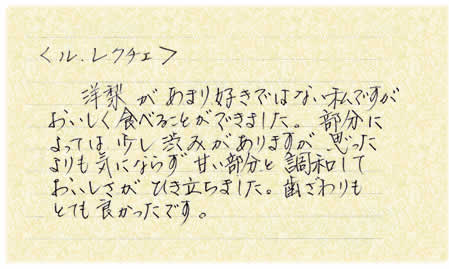 ＜ル・レクチェ＞
洋梨があまり好きではない私ですが
おいしく食べることができました。部分に
よっては少し渋みがありますが、思った
よりも気にならず甘い部分と調和して
おいしさがひき立ちました。歯ざわりも
とても良かったです。